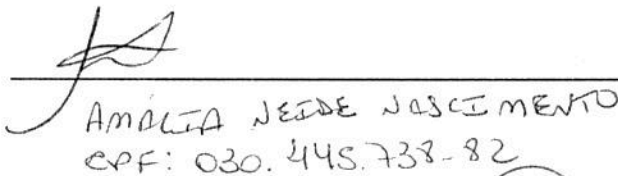 AMALIA NEIDE NASCIMENTO
CPF: 030.445.738-82